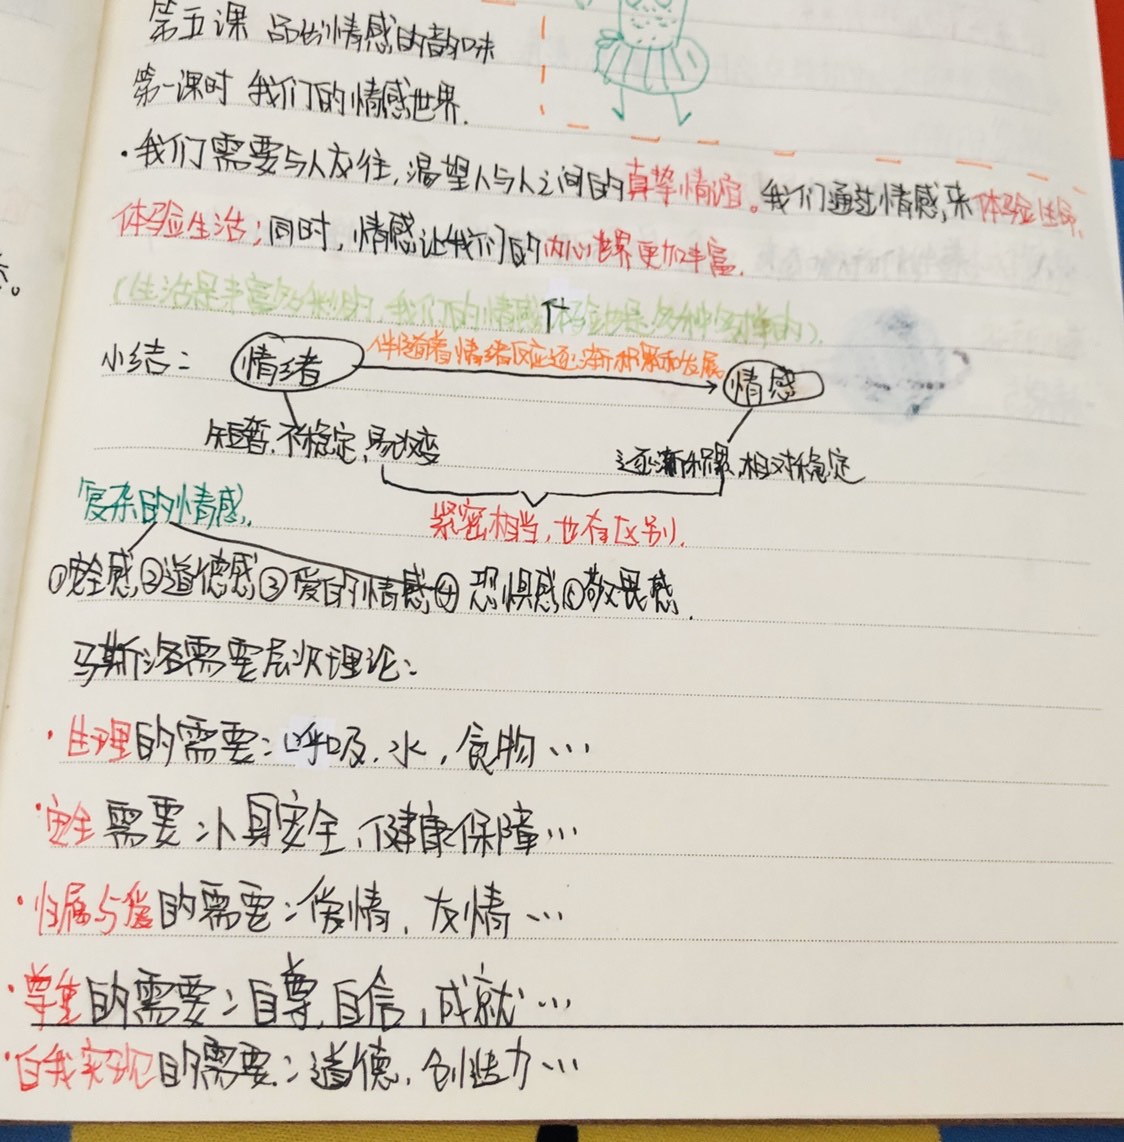 第五课 品出情感的韵味
第一课时 我们的情感世界.
·我们需要与人交往,渴望人与人之间的真挚情谊。我们通过情感,来体验生命,
体验生活;同时,情感让我们的内心世界更加丰富.
(生活是丰富多彩的,我们的情感体验也是多种多样的).
小结: 情绪 伴随着情绪反应逐渐积累和发展 情感
短暂.不稳定,易改变 逐渐积累,相对稳定
紧密相当,也有区别.
复杂的情感.
①安全感②道德感③爱的情感④恐惧感⑤敬畏感.
马斯洛需要层次理论:
·生理的需要:呼吸.水,食物…
·安全需要:人身安全、健康保障…
·归属与爱的需要:爱情,友情…
·尊重的需要:自尊,自信,成就…
·自我实现的需要:道德,创造力…